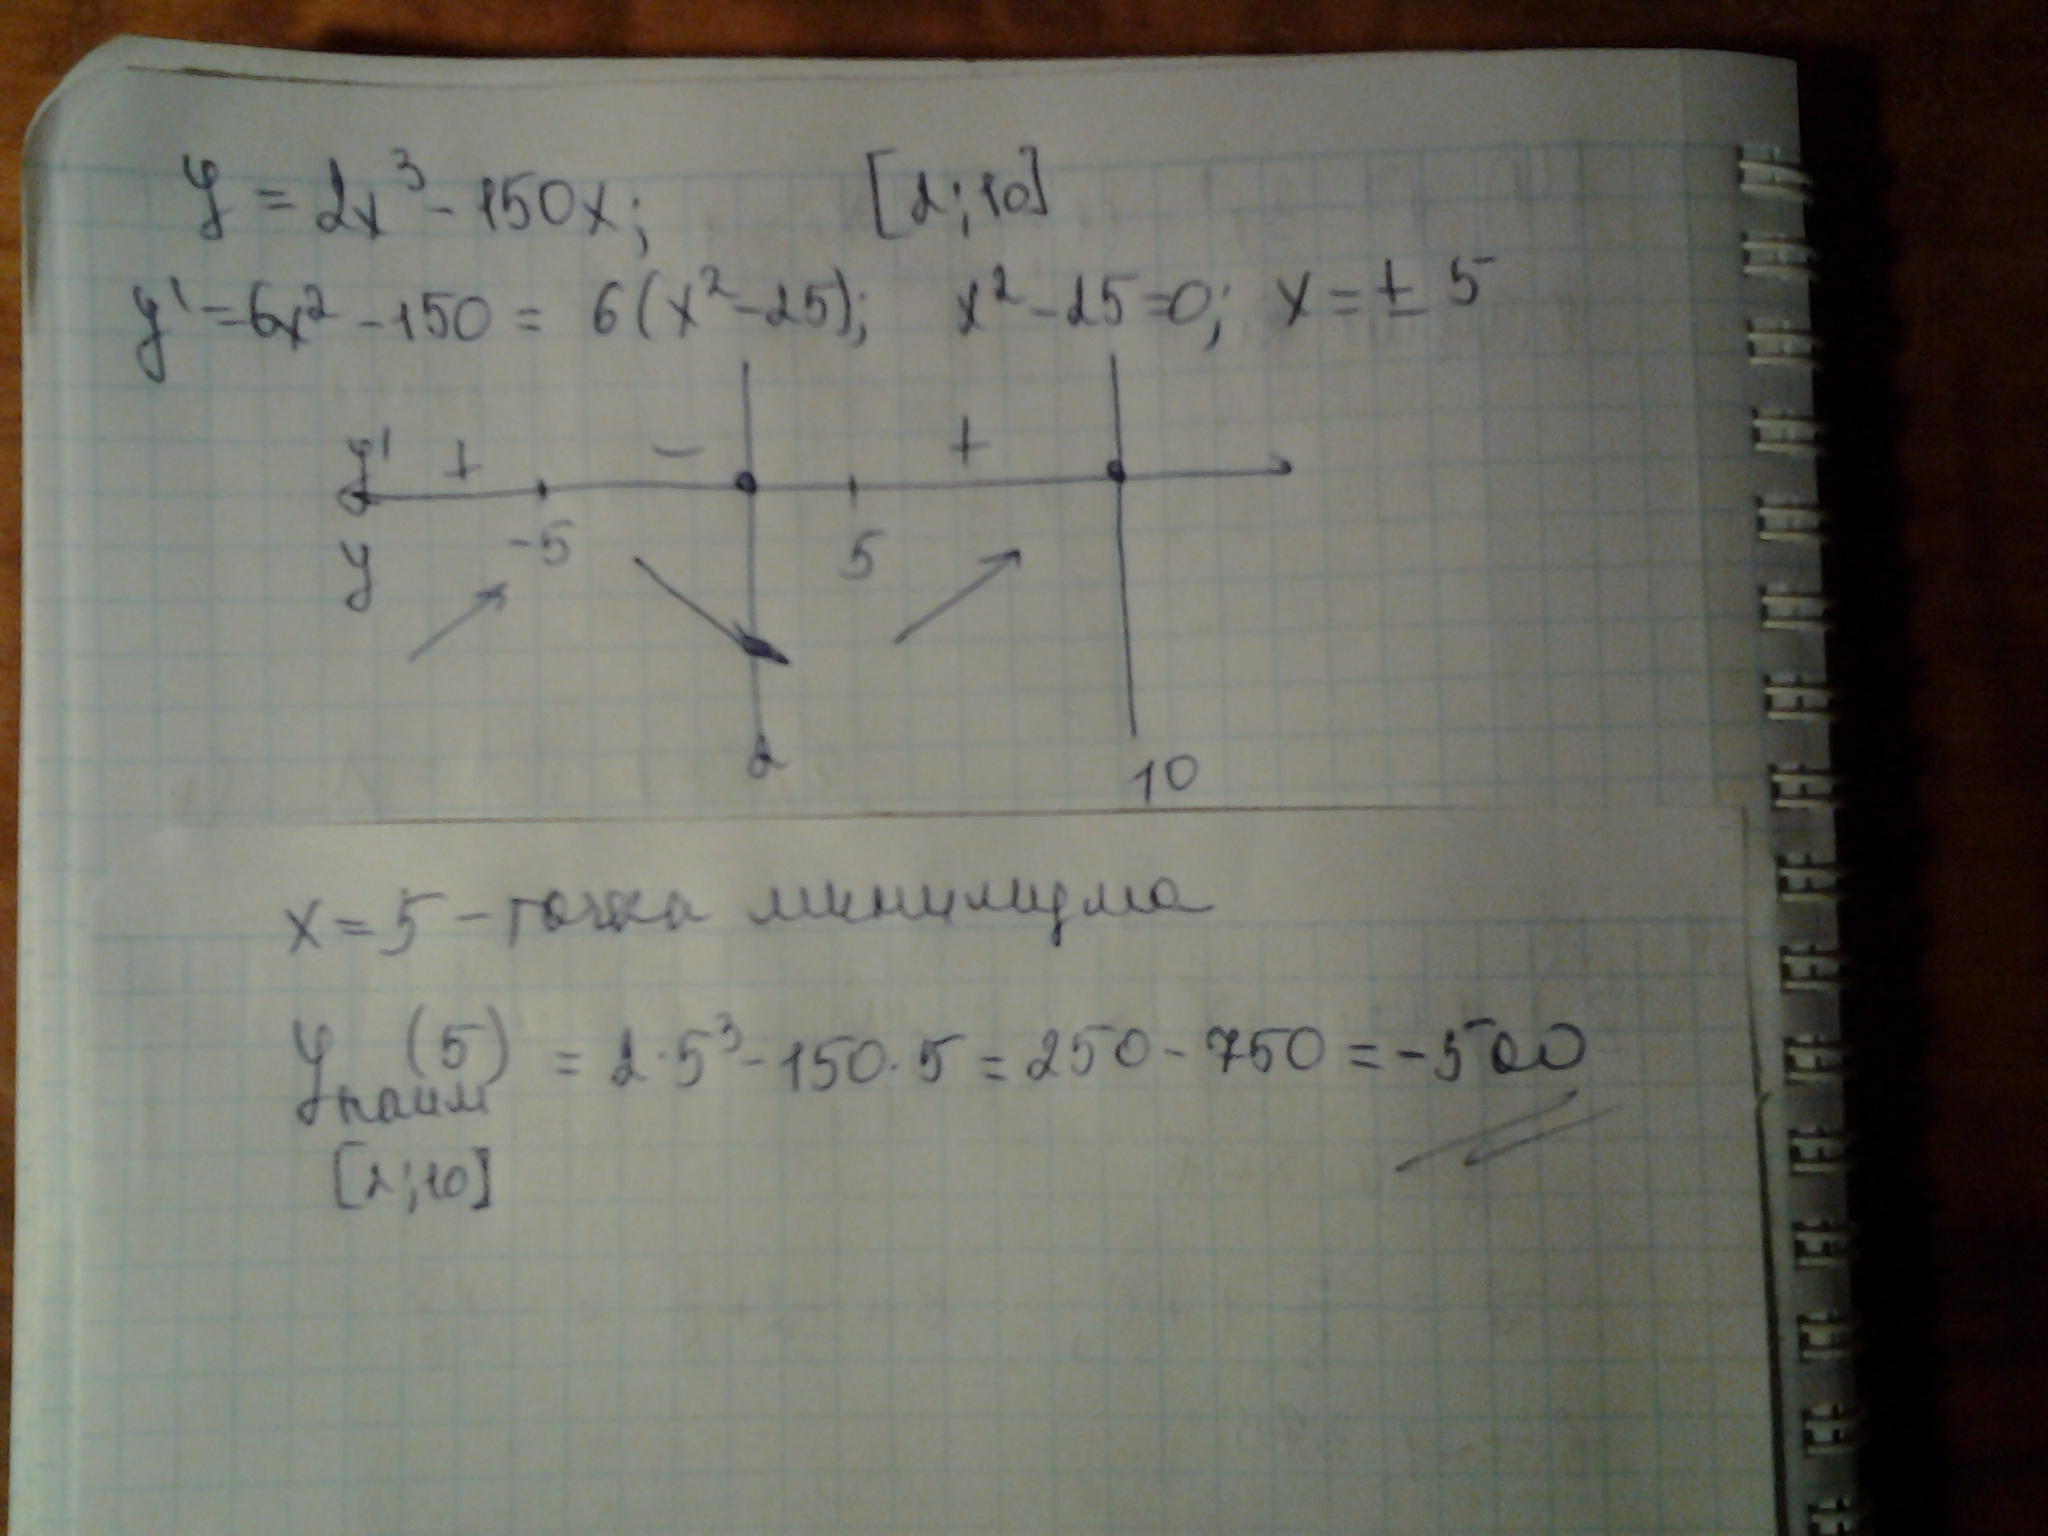 y = 2x³ - 150x; [2; 10]
y' = 6x² - 150 = 6(x² - 25); x² - 25 = 0; x = ± 5
y' + - +
-5 5
y
2 10
x = 5 - точка минимума
y наим (5) = 2·5³ - 150·5 = 250 - 750 = -500
[2; 10]